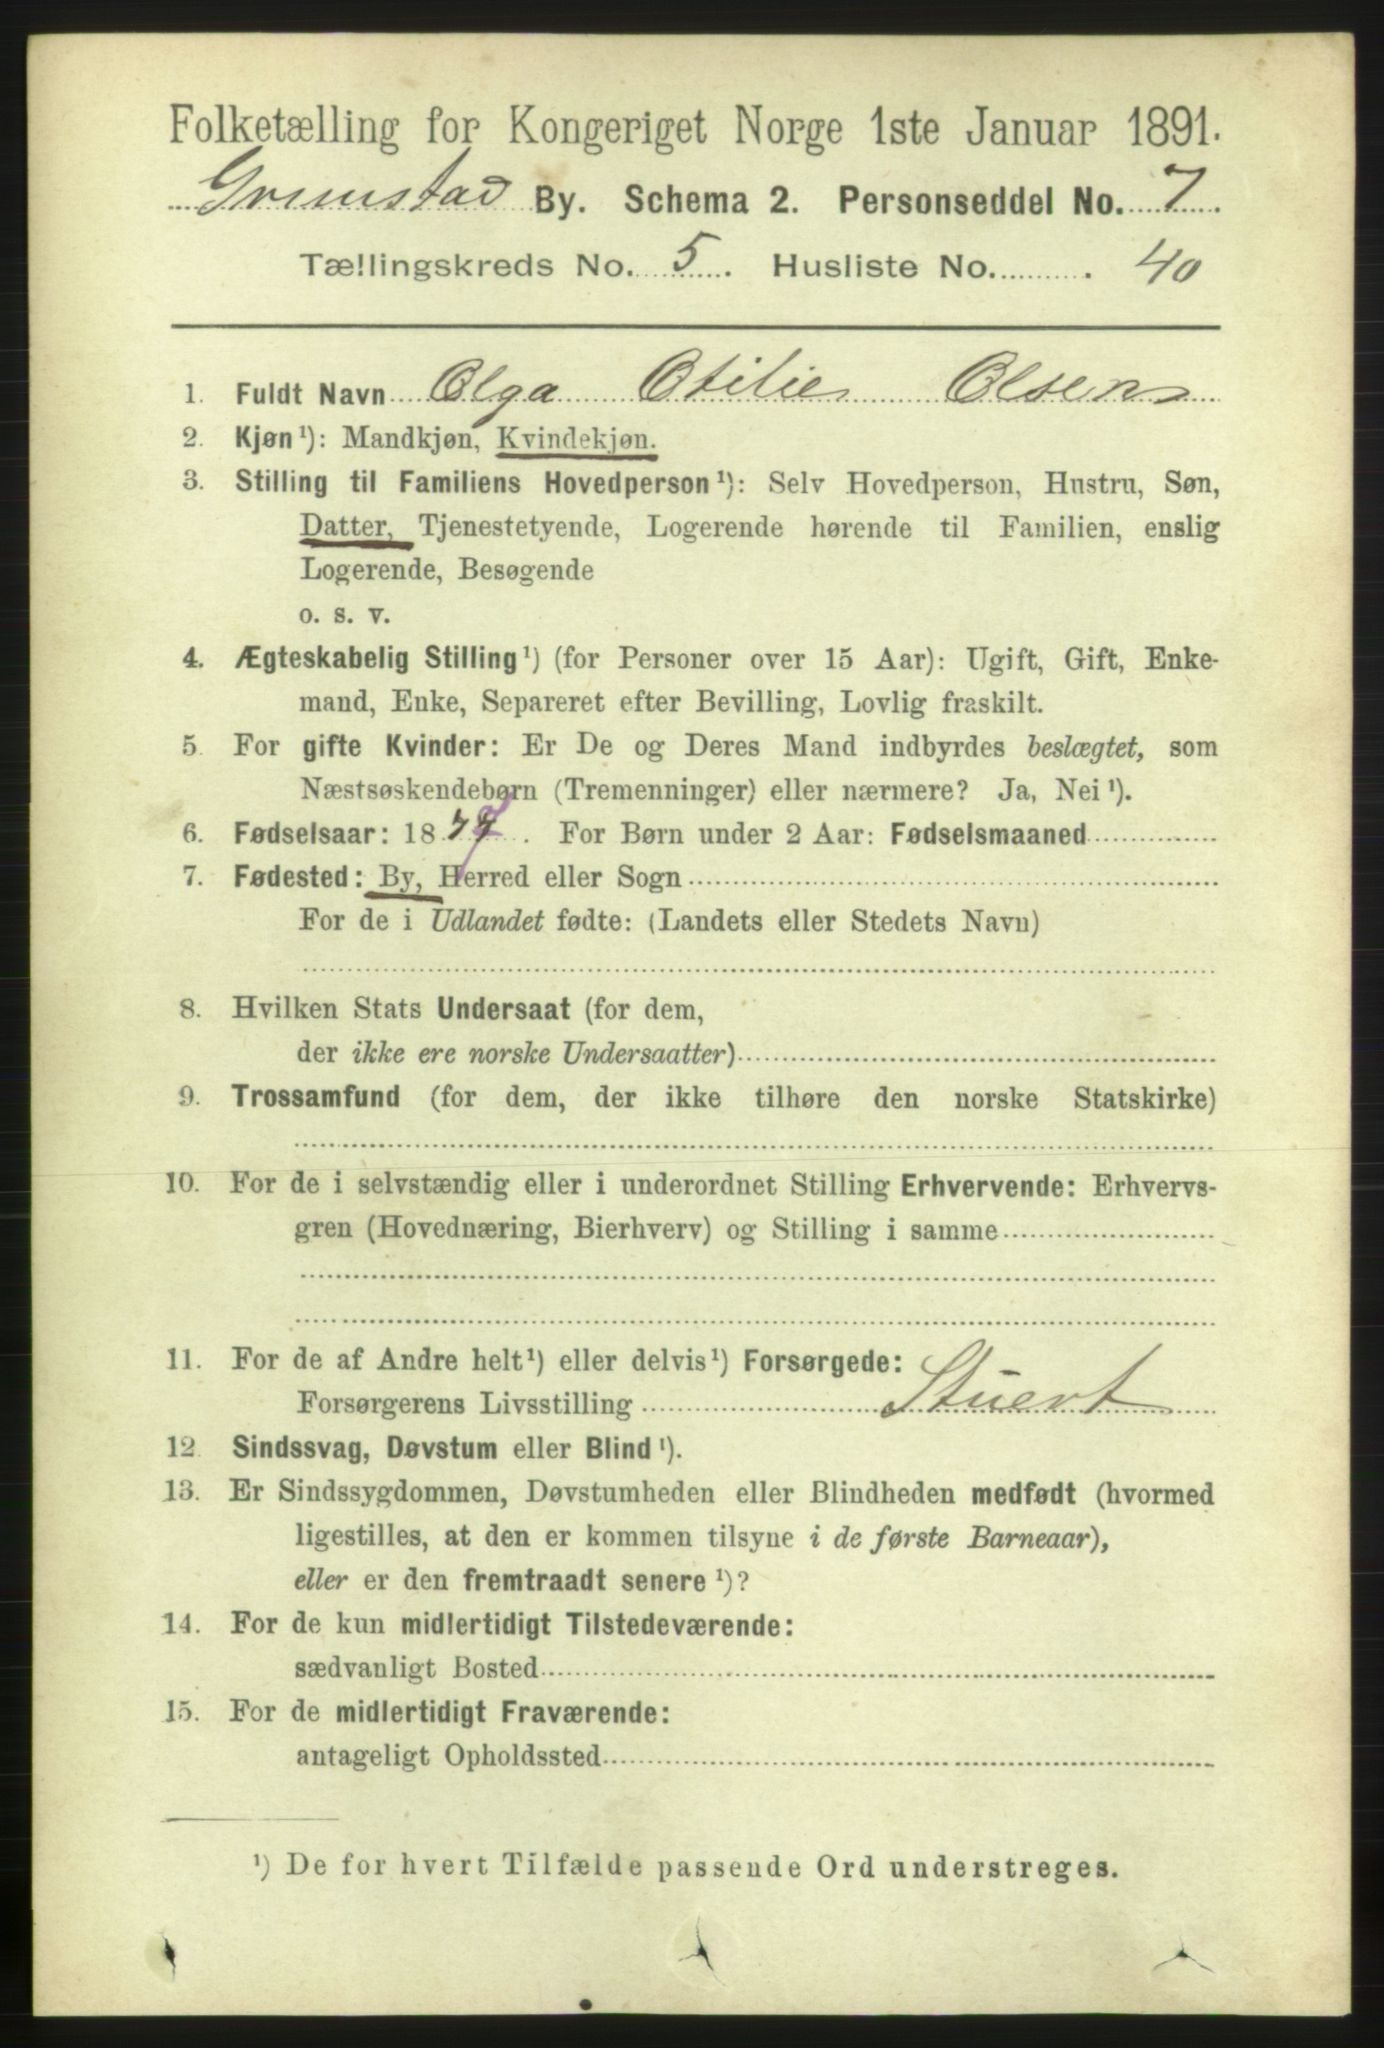 Folketælling for Kongeriget Norge 1ste Januar 1891.
Grimstad By. Schema 2. Personseddel No. 7.
Tællingskreds No. 5. Husliste No. 40
1. Fuldt Navn Olga Otilie Olsen
2. Kjøn¹): Mandkjøn, Kvindekjøn.
3. Stilling til Familiens Hovedperson¹): Selv Hovedperson, Hustru, Søn,
Datter, Tjenestetyende, Logerende hørende til Familien, enslig
Logerende, Besøgende
o. s. v.
4. Ægteskabelig Stilling¹) (for Personer over 15 Aar): Ugift, Gift, Enke-
mand, Enke, Separeret efter Bevilling, Lovlig fraskilt.
5. For gifte Kvinder: Er De og Deres Mand indbyrdes beslægtet, som
Næstsøskendebørn (Tremenninger) eller nærmere? Ja, Nei¹).
6. Fødselsaar: 1877. For Børn under 2 Aar: Fødselsmaaned
7. Fødested: By, Herred eller Sogn
For de i Udlandet fødte: (Landets eller Stedets Navn)
8. Hvilken Stats Undersaat (for dem,
der ikke ere norske Undersaatter)
9. Trossamfund (for dem, der ikke tilhøre den norske Statskirke)
10. For de i selvstændig eller i underordnet Stilling Erhvervende: Erhvervs-
gren (Hovednæring, Bierhverv) og Stilling i samme
11. For de af Andre helt¹) eller delvis¹) Forsørgede:
Forsørgerens Livsstilling Stuert
12. Sindssvag, Døvstum eller Blind¹).
13. Er Sindssygdommen, Døvstumheden eller Blindheden medfødt (hvormed
ligestilles, at den er kommen tilsyne i de første Barneaar),
eller er den fremtraadt senere¹)?
14. For de kun midlertidigt Tilstedeværende:
sædvanligt Bosted
15. For de midlertidigt Fraværende:
antageligt Opholdssted
¹) De for hvert Tilfælde passende Ord understreges.